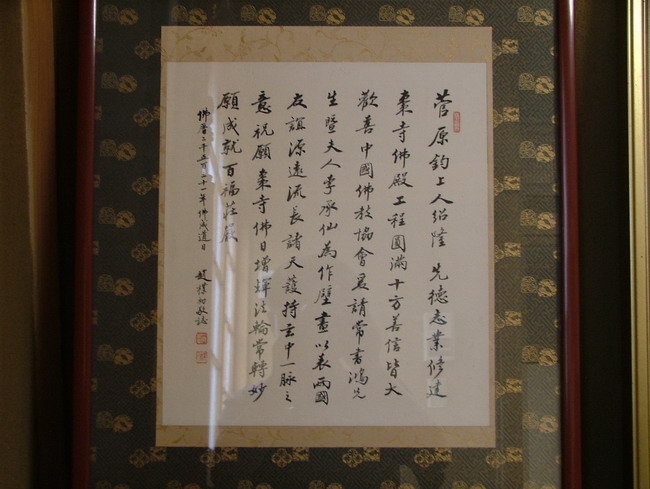 菅原鈞上人紹隆 先德志業修建
棗寺佛殿工程圓滿十方善信皆大
歡喜中國佛教協會爰請常書鴻先
生暨夫人李承仙為作壁畫以表兩國
友誼源遠流長諸天護持玄中一脈之
意祝願棗寺佛日增輝法輪常轉妙
願成就百福莊嚴
佛曆二千五百二十一年佛成道日 趙樸初敬識